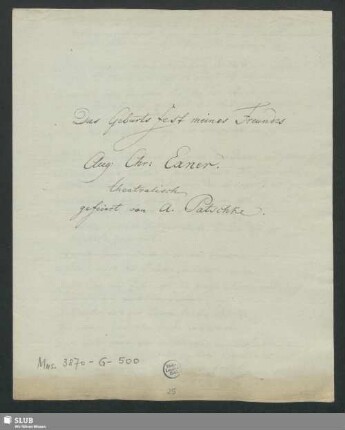 Das Geburts Fest meines Freundes
Aug. Chr: Exner.
theatralisch
gefeiert von A. Patschke.
Mus. 3870-G-500
25
SLUB
Wir führen Wissen.